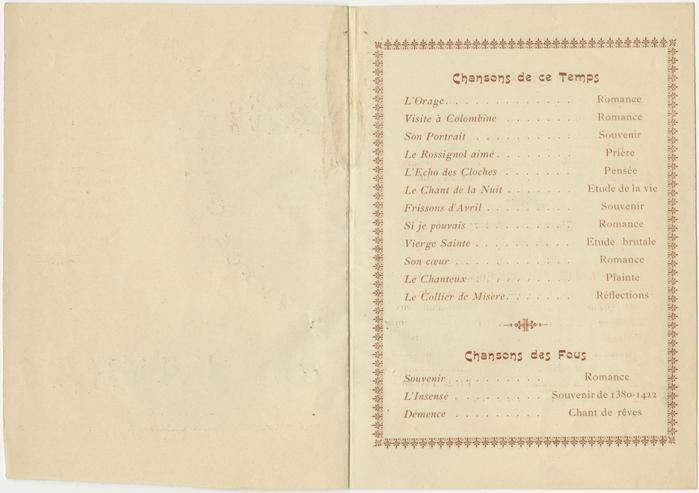 Chansons de ce Temps
L'Orage. . . . . . . . . . . . Romance
Visite à Colombine . . . . . . . Romance
Son Portrait . . . . . . . . . . Souvenir
Le Rossignol aimé . . . . . . . Prière
L'Echo des Cloches . . . . . . . Pensée
Le Chant de la Nuit . . . . . . . Etude de la vie
Frissons d'Avril . . . . . . . . Souvenir
Si je pouvais . . . . . . . . . . Romance
Vierge Sainte . . . . . . . . . Etude brutale
Son cœur . . . . . . . . . . . Romance
Le Chanteux . . . . . . . . . . Plainte
Le Collier de Misère. . . . . . . Réflections
Chansons des Fous
Souvenir . . . . . . . . Romance
L'Insensé . . . . . . . . Souvenir de 1380-1422
Démence . . . . . . . . Chant de rêves